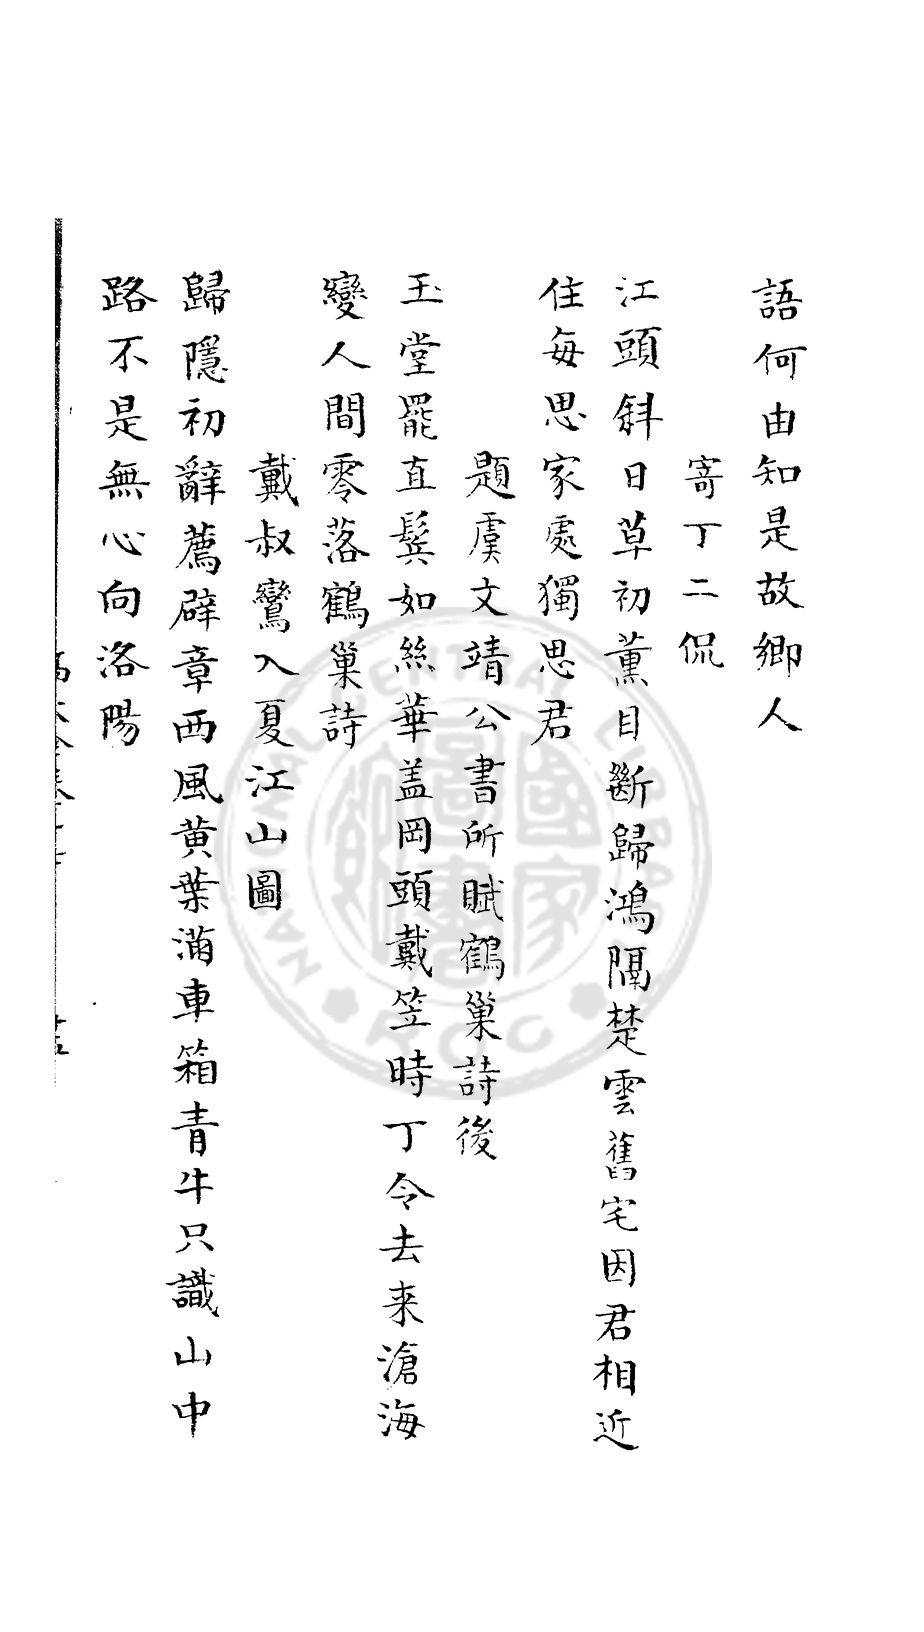 語何由知是故鄉人
寄丁二侃
江頭斜日草初薰目斷歸鴻隔楚雲舊宅因君相近
住每思家處獨思君
題虞文靖公書所賦鶴巢詩後
玉堂罷直鬂如絲華盖岡頭戴笠時丁令去来滄海
變人間零落鶴巢詩
戴叔鸞入夏江山圖
歸隱初辭薦辟章西風黄葉滿車箱青牛只識山中
路不是無心向洛陽
NATIONAL CENTRAL LIBRARY
R.O.C
國家圖書館